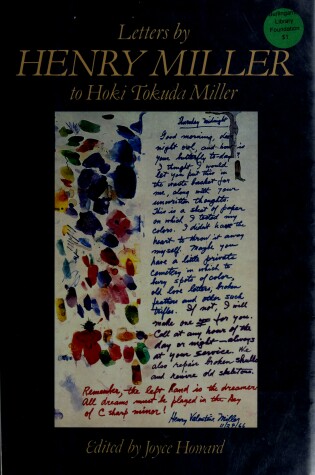 Burlingame
Library
Foundation
$1
Letters by
HENRY MILLER
to Hoki Tokuda Miller
Thursday midnight
Good morning, dear
night owl, and how is
your butterfly to-day?
I thought I would
let you put this in
the waste basket for
me, along with your
unwritten thoughts.
This is a sheet of paper
on which I tested my
colors. I didn't have the
heart to throw it away
myself. Maybe you
have a little private
cemetery in which to
bury spots of color,
old love letters, broken
feathers and other such
trifles. If not, I will
make one for you.
Call at any hour of the
day or night—always
at your service. We
also repair broken shells
and revive old skeletons.
Remember, the left hand is the dreamer
All dreams must be played in the key
of C sharp minor!
Henry Valentine Miller
Edited by Joyce Howard